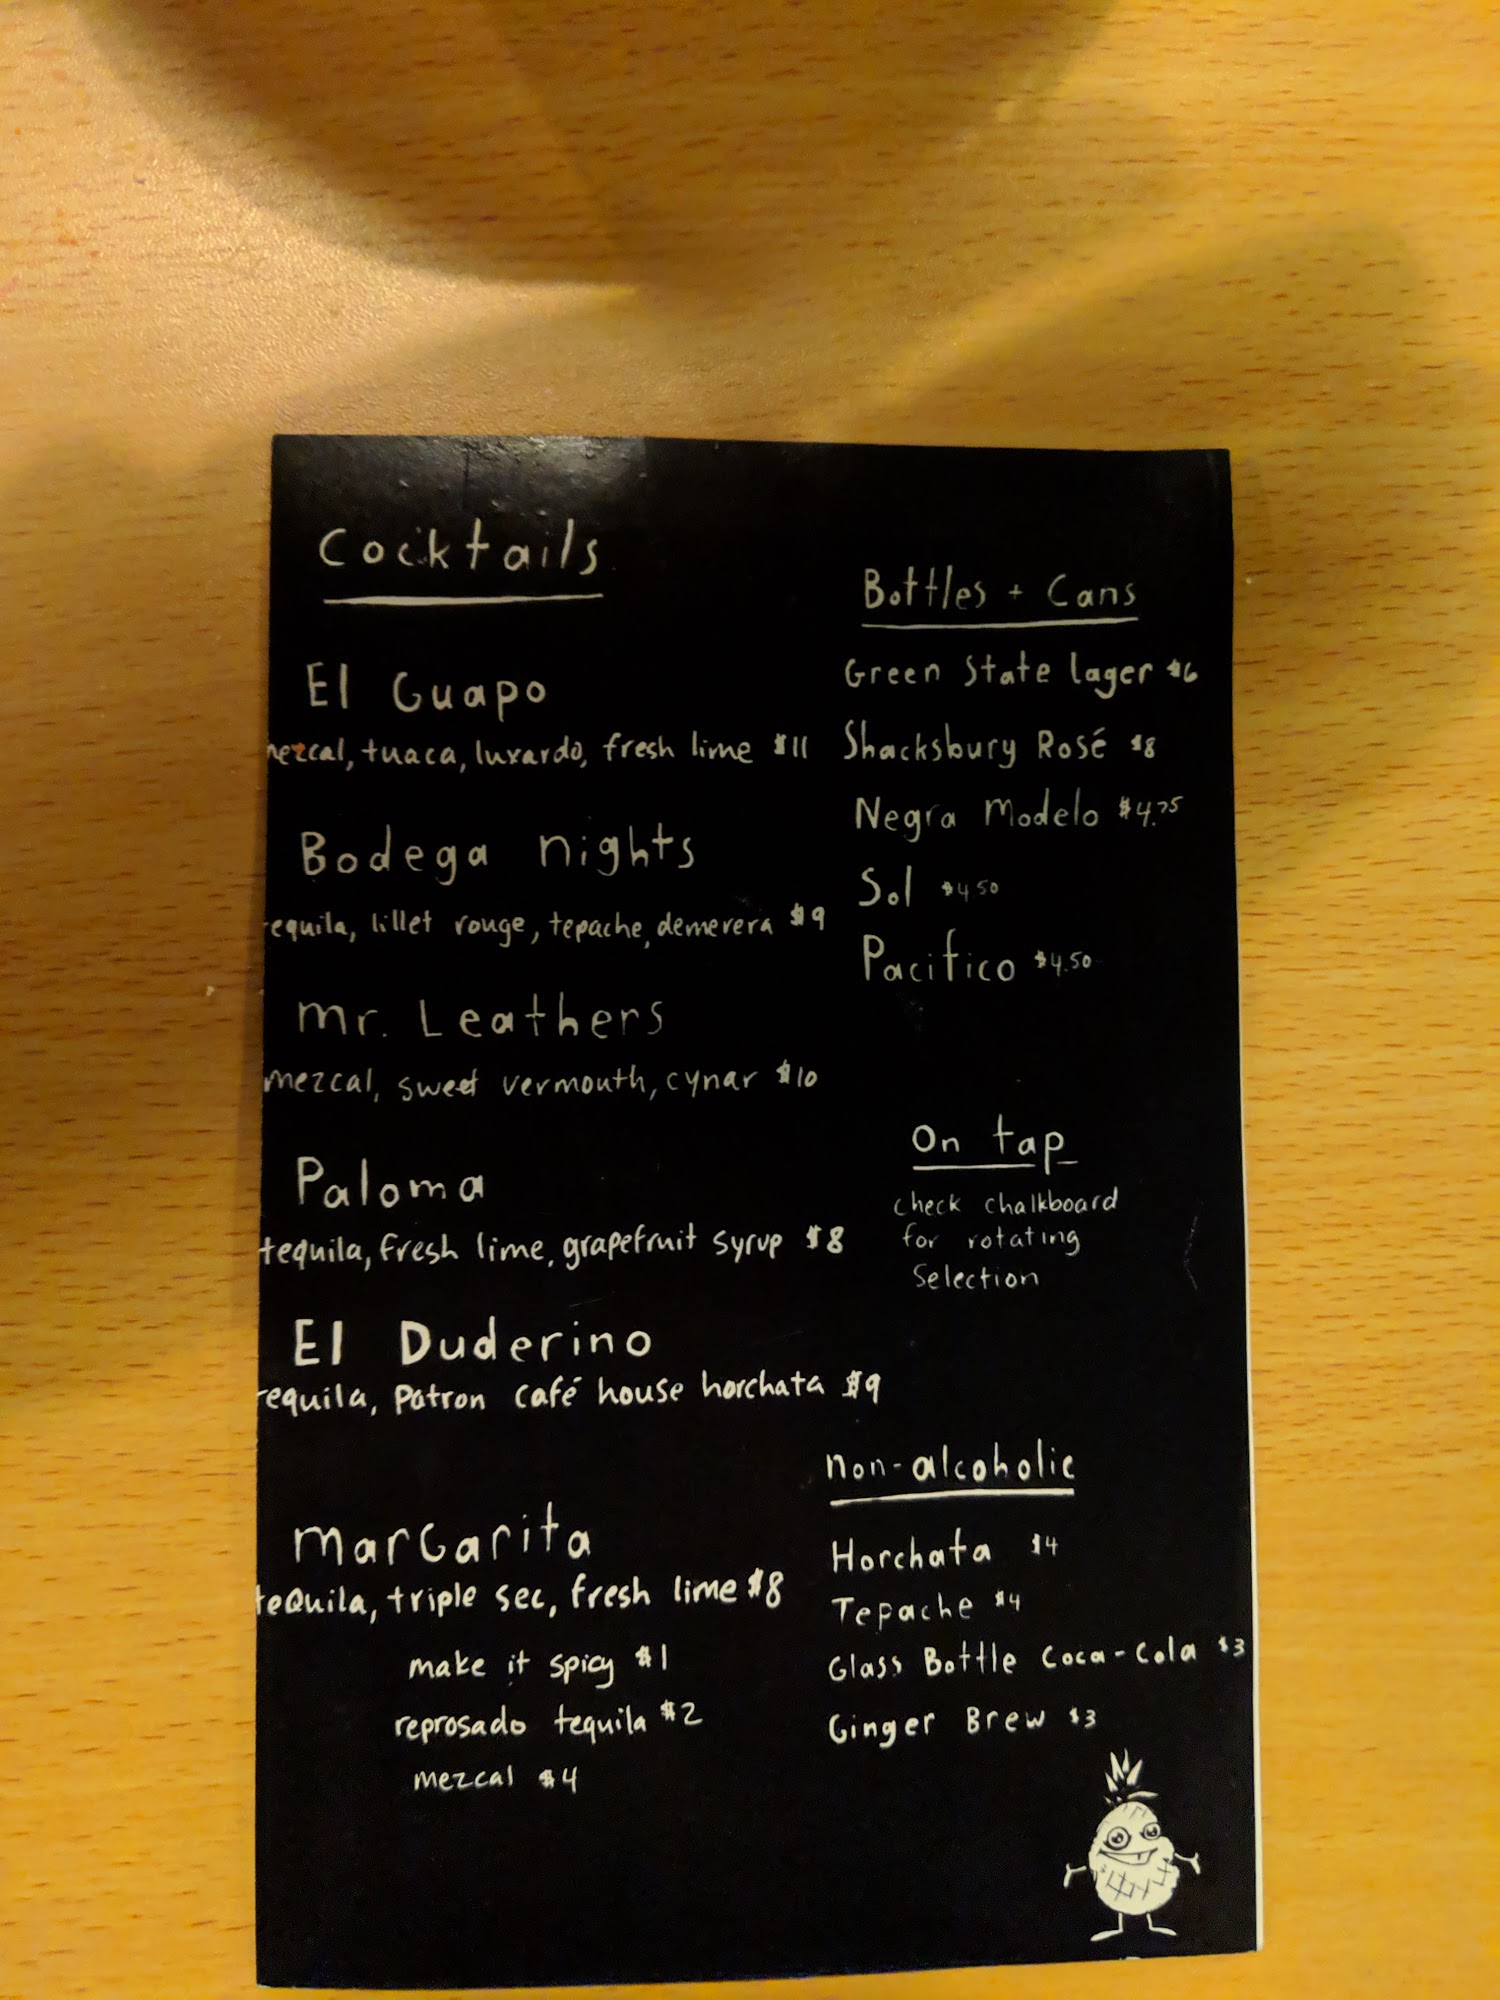 Cocktails
El Guapo
mezcal, tuaca, luxardo, fresh lime $11
Bodega nights
tequila, lillet rouge, tepache, demerera $9
mr. Leathers
mezcal, sweet vermouth, cynar $10
Paloma
tequila, fresh lime, grapefruit syrup $8
El Duderino
tequila, Patron café house horchata $9
marGarita
teQuila, triple sec, fresh lime $8
make it spicy $1
reprosado tequila $2
mezcal $4
Bottles + Cans
Green State lager $6
Shacksbury Rosé $8
Negra Modelo $4.75
Sol $4.50
Pacifico $4.50
On tap
check chalkboard
for rotating
Selection
non-alcoholic
Horchata $4
Tepache $4
Glass Bottle Coca-Cola $3
Ginger Brew $3